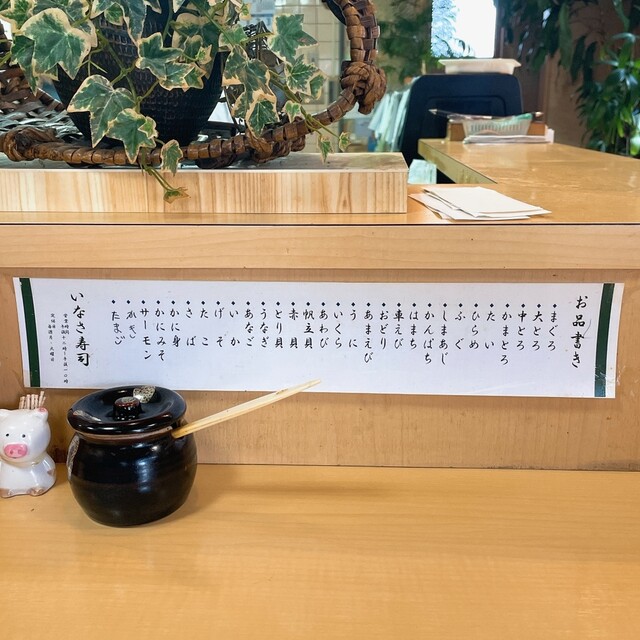 お品書き
まぐろ
大とろ
中とろ
かまとろ
たい
ひらめ
ふぐ
しまあじ
かんぱち
はまち
車えび
おどり
あまえび
うに
いくら
あわび
帆立貝
赤貝
とり貝
うなぎ
あなご
いか
げそ
たこ
さば
かに身
かにみそ
サーモン
たまご
いなき寿司